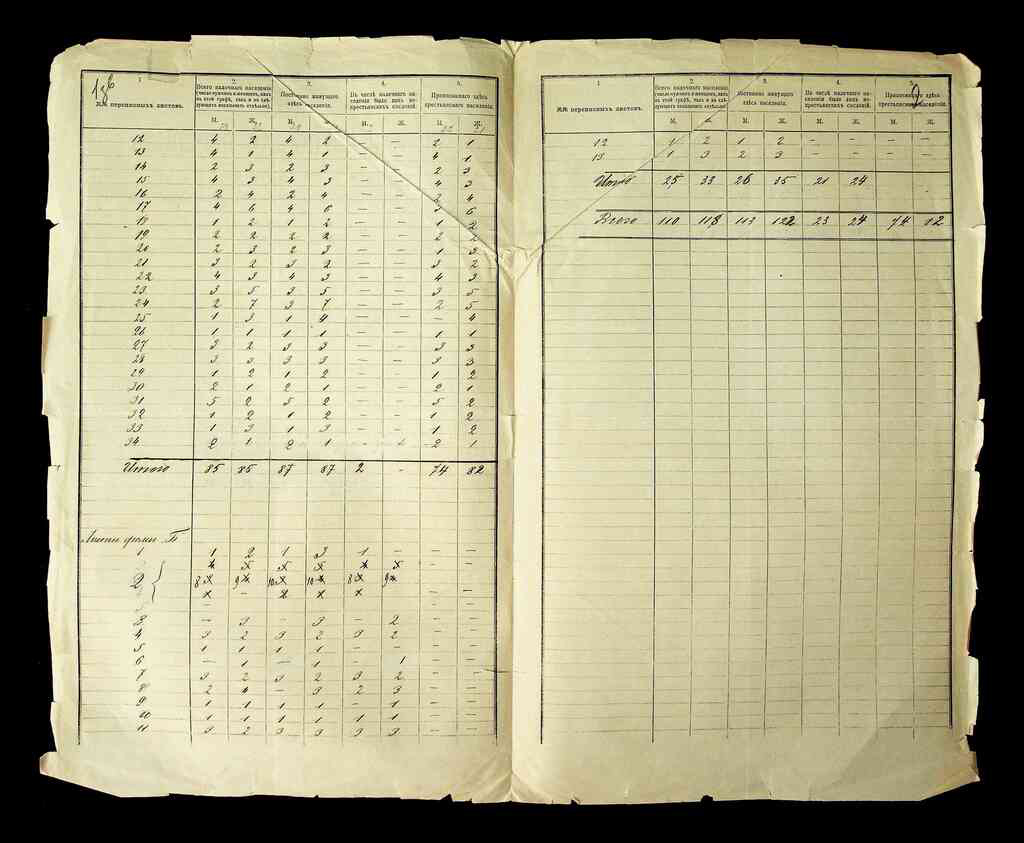 136
1. 2. 3. 4. 5.
№№ переписныхъ листовъ.
Всего наличнаго населенія
Постоянно живущаго здѣсь населенія.
Въ числѣ наличнаго населенія было лицъ некрестьянскихъ сословій.
Приписаннаго здѣсь крестьянскаго населенія.
М. Ж. М. Ж. М. Ж. М. Ж.
12 4 2 4 2 — — 2 1
13 4 1 4 1 — — 4 1
14 2 3 2 3 — — 2 3
15 4 3 4 3 — — 4 3
16 2 4 2 4 — — 2 4
17 4 6 4 6 — — 3 6
18 1 2 1 2 — — 1 2
19 2 2 2 2 — — 2 2
20 2 3 2 3 — — 1 3
21 3 2 3 2 — — 3 2
22 4 3 4 3 — — 4 3
23 3 5 3 5 — — 3 5
24 2 7 3 7 — — 2 5
25 1 3 1 4 — — — 4
26 1 1 1 1 — — 1 1
27 3 2 3 3 — — 3 3
28 3 3 3 3 — — 3 3
29 1 2 1 2 — — 1 2
30 2 1 2 1 — — 2 1
31 5 2 5 2 — — 5 2
32 1 2 1 2 — — 1 2
33 1 3 1 3 — — 1 2
34 2 1 2 1 — — 2 1
Итого 85 85 87 87 2 - 74 82
Листы формы Б
1 1 2 1 3 1 — — —
2 8 9 10 10 8 9
3 — 3 — 3 — 2 — —
4 3 2 3 2 3 2 — —
5 1 1 1 1 — — — —
6 — 1 — 1 — 1 — —
7 3 2 3 2 3 2 — —
8 2 4 — 3 2 3 — —
9 1 1 1 1 — 1 — —
10 1 1 1 1 1 1 — —
11 3 2 3 3 3 3 — —
2
1 2. 3. 4. 5.
№№ переписныхъ листовъ.
Всего наличнаго населенія
Постоянно живущаго здѣсь населенія.
Въ числѣ наличнаго населенія было лицъ некрестьянскихъ сословій.
Приписаннаго здѣсь крестьянскаго населенія.
М. Ж. М. Ж. М. Ж. М. Ж.
12 1 2 1 2 — — — —
13 1 3 2 3 — — — —
Итого 25 33 26 35 21 24
Всего 110 118 113 122 23 24 74 82